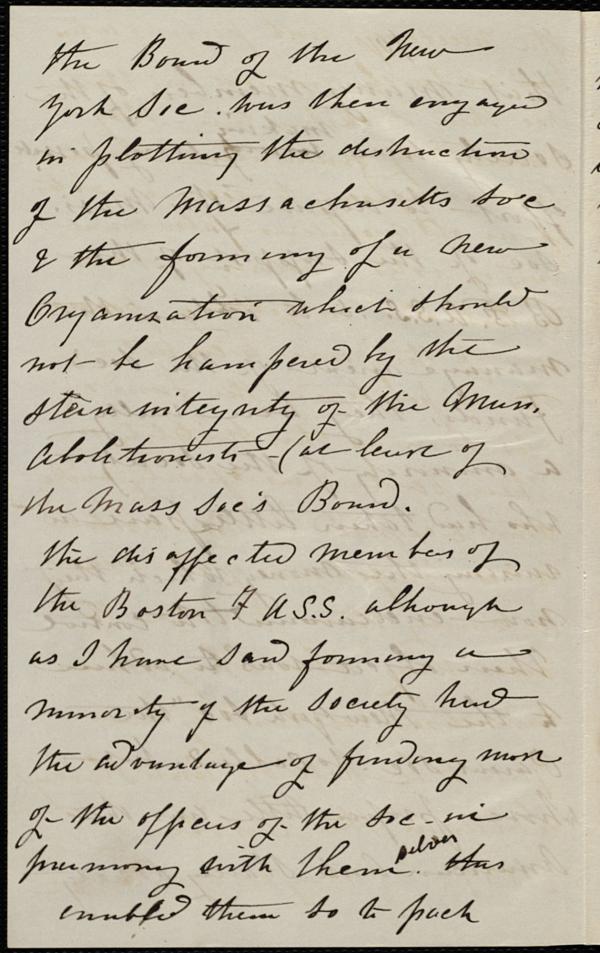 the Board of the New
York Soc. was then engaged
in plotting the destruction
of the Massachusetts Soc
& the forming of a new
Organization which should
not be hampered by the
stern integrity of the Mass.
Abolitionists - (at least of
the Mass Soc's Board.
the disaffected members of
the Boston F A.S.S. although
as I have said forming a
minority of the Society had
the advantage of finding most
of the officers of the Soc - in
with them. This
enabled them so to pack